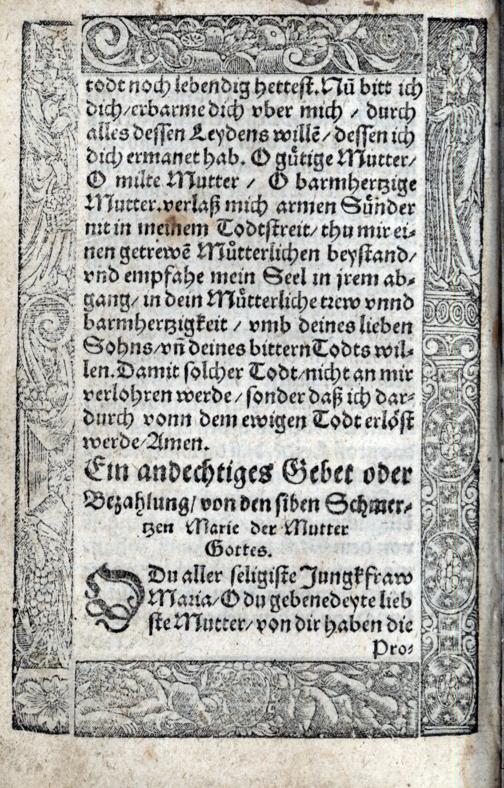 todt noch lebendig hettest. Nũ bitt ich
dich/ erbarme dich vber mich / durch
alles dessen Leydens willẽ / dessen ich
dich ermanet hab. O guͤtige Mutter/
O milte Mutter / O barmhertzige
Mutter. verlaß mich armen Suͤnder
nit in meinem Todtstreit/ thu mir ei-
nen getrewẽ Muͤtterlichen beystand/
vnd empfahe mein Seel in jrem ab-
gang/ in dein Muͤtterliche trew vnnd
barmhertzigkeit / vmb deines lieben
Sohns/ vñ deines bittern Todts wil-
len. Damit solcher Todt/ nicht an mir
verlohren werde / sonder daß ich dar-
durch vonn dem ewigen Todt erloͤst
werde/ Amen.
Ein andechtiges Gebet oder
Bezahlung/ von den siben Schmer-
tzen Marie der Mutter
Gottes.
O Du aller seligiste Jungkfraw
Maria/ O du gebenedeyte lieb
ste Mutter/ von dir haben die
Pro-